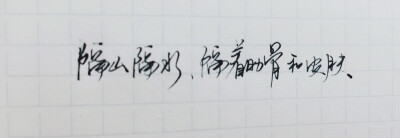 隔山隔水、隔着肋骨和皮肤、